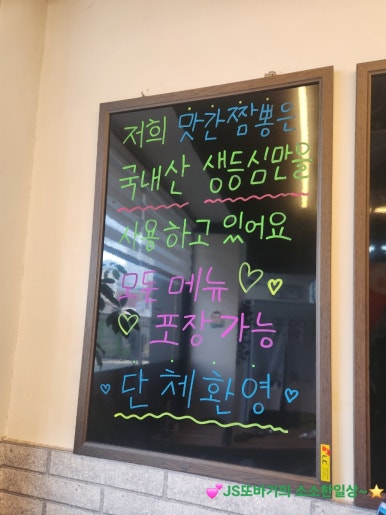 저희 맛간짬뽕은
국내산 생등심만을
사용하고 있어요
모든 메뉴
포장 가능
단체환영
JS또바기의 소소한일상~